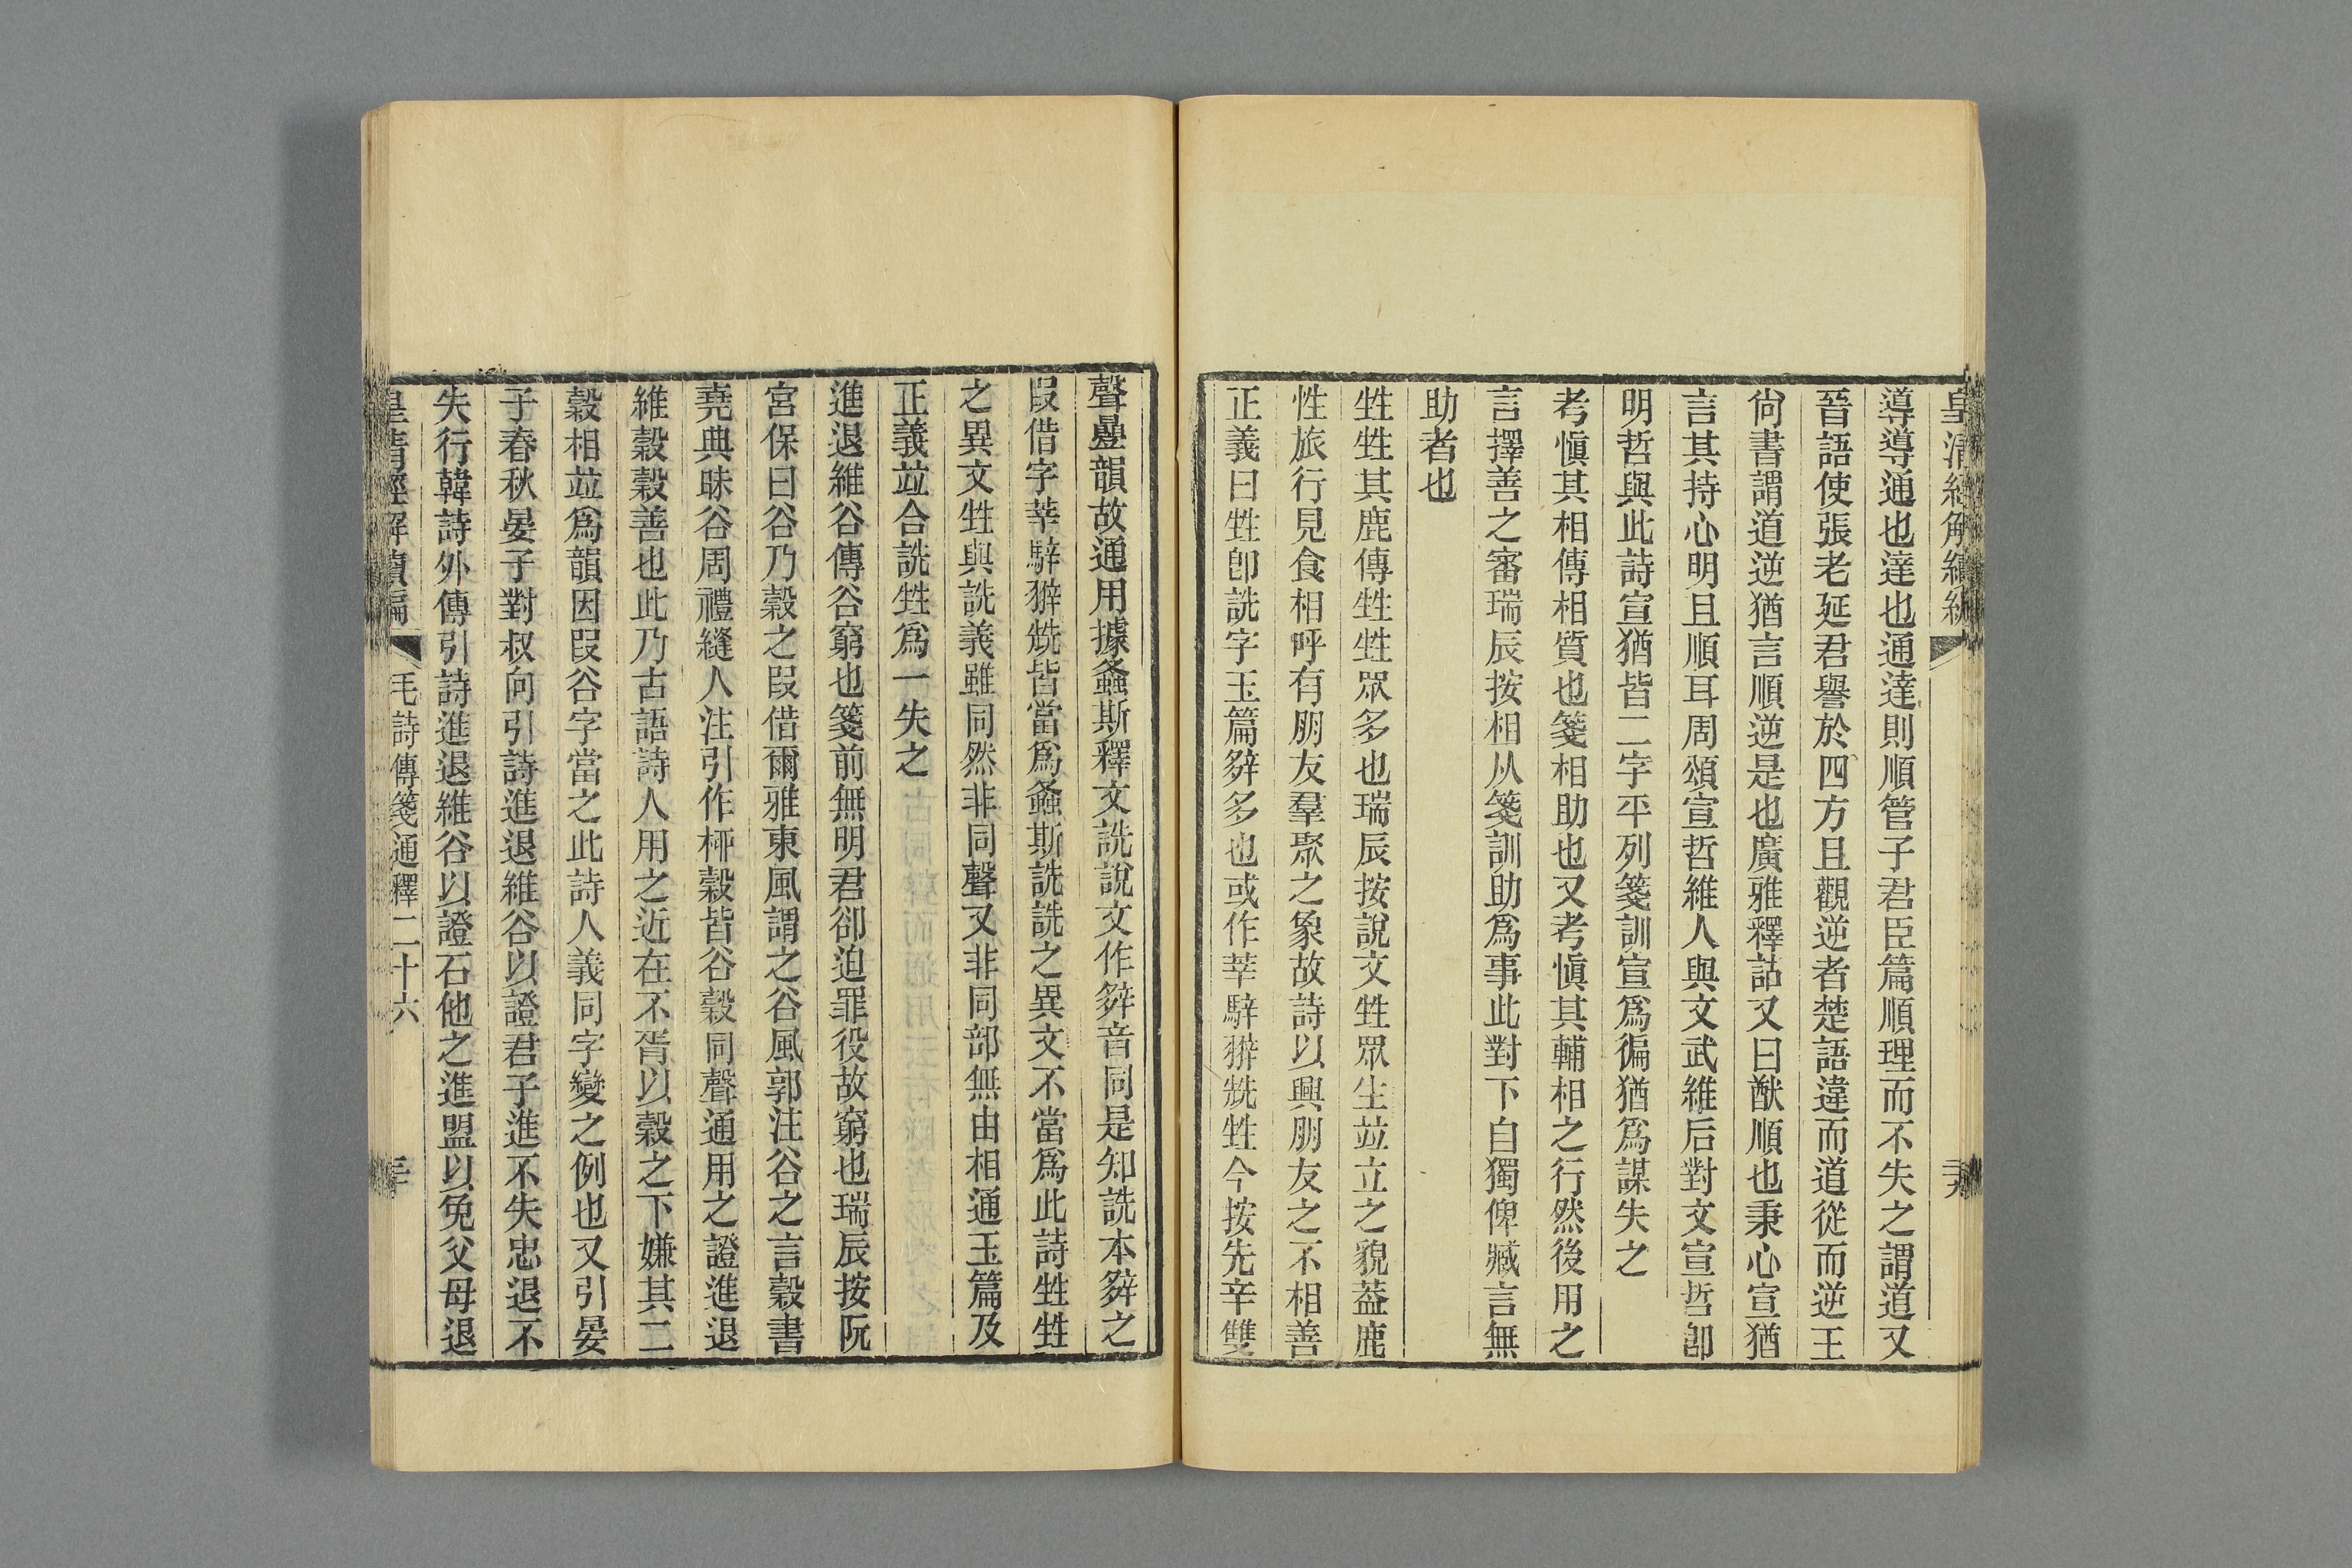 皇清經解續編
導導通也達也通達則順管子君臣篇順理而不失之謂道又
晉語使張老延君譽於四方且觀逆者楚語違而道從而逆王
尙書謂道逆猶言順逆是也廣雅釋詁又曰猷順也秉心宣猶
言其持心明且順耳周頌宣哲維人與文武維后對文宣哲卽
明哲與此詩宣猶皆二字平列箋訓宣爲徧猶爲謀失之
考愼其相傳相質也箋相助也又考愼其輔相之行然後用之
言擇善之審瑞辰按相从箋訓助爲事此對下自獨俾臧言無
助者也
甡甡其鹿傳甡甡眾多也瑞辰按說文甡眾生竝立之貌葢鹿
性旅行見食相呼有朋友羣聚之象故詩以興朋友之不相善
正義曰甡卽詵字玉篇㚔多也或作莘騂㹺兟甡今按先辛雙
聲疊韻故通用據螽斯釋文詵說文作㚔音同是知詵本㚔之
叚借字莘騂㹺兟皆當爲螽斯詵詵之異文不當爲此詩甡甡
之異文甡與詵義雖同然非同聲又非同部無由相通玉篇及
正義竝合詵甡爲一失之
進退維谷傳谷窮也箋前無明君卻迫罪役故窮也瑞辰按阮
宮保曰谷乃穀之叚借爾雅東風謂之谷風郭注谷之言穀書
堯典昧谷周禮縫人注引作栁穀皆谷穀同聲通用之證進退
維穀穀善也此乃古語詩人用之近在不胥以穀之下嫌其二
穀相竝爲韻因叚谷字當之此詩人義同字變之例也又引晏
子春秋晏子對叔向引詩進退維谷以證君子進不失忠退不
失行韓詩外傳引詩進退維谷以證石他之進盟以免父母退
皇清經解續編
毛詩傳箋通釋二十六
三十